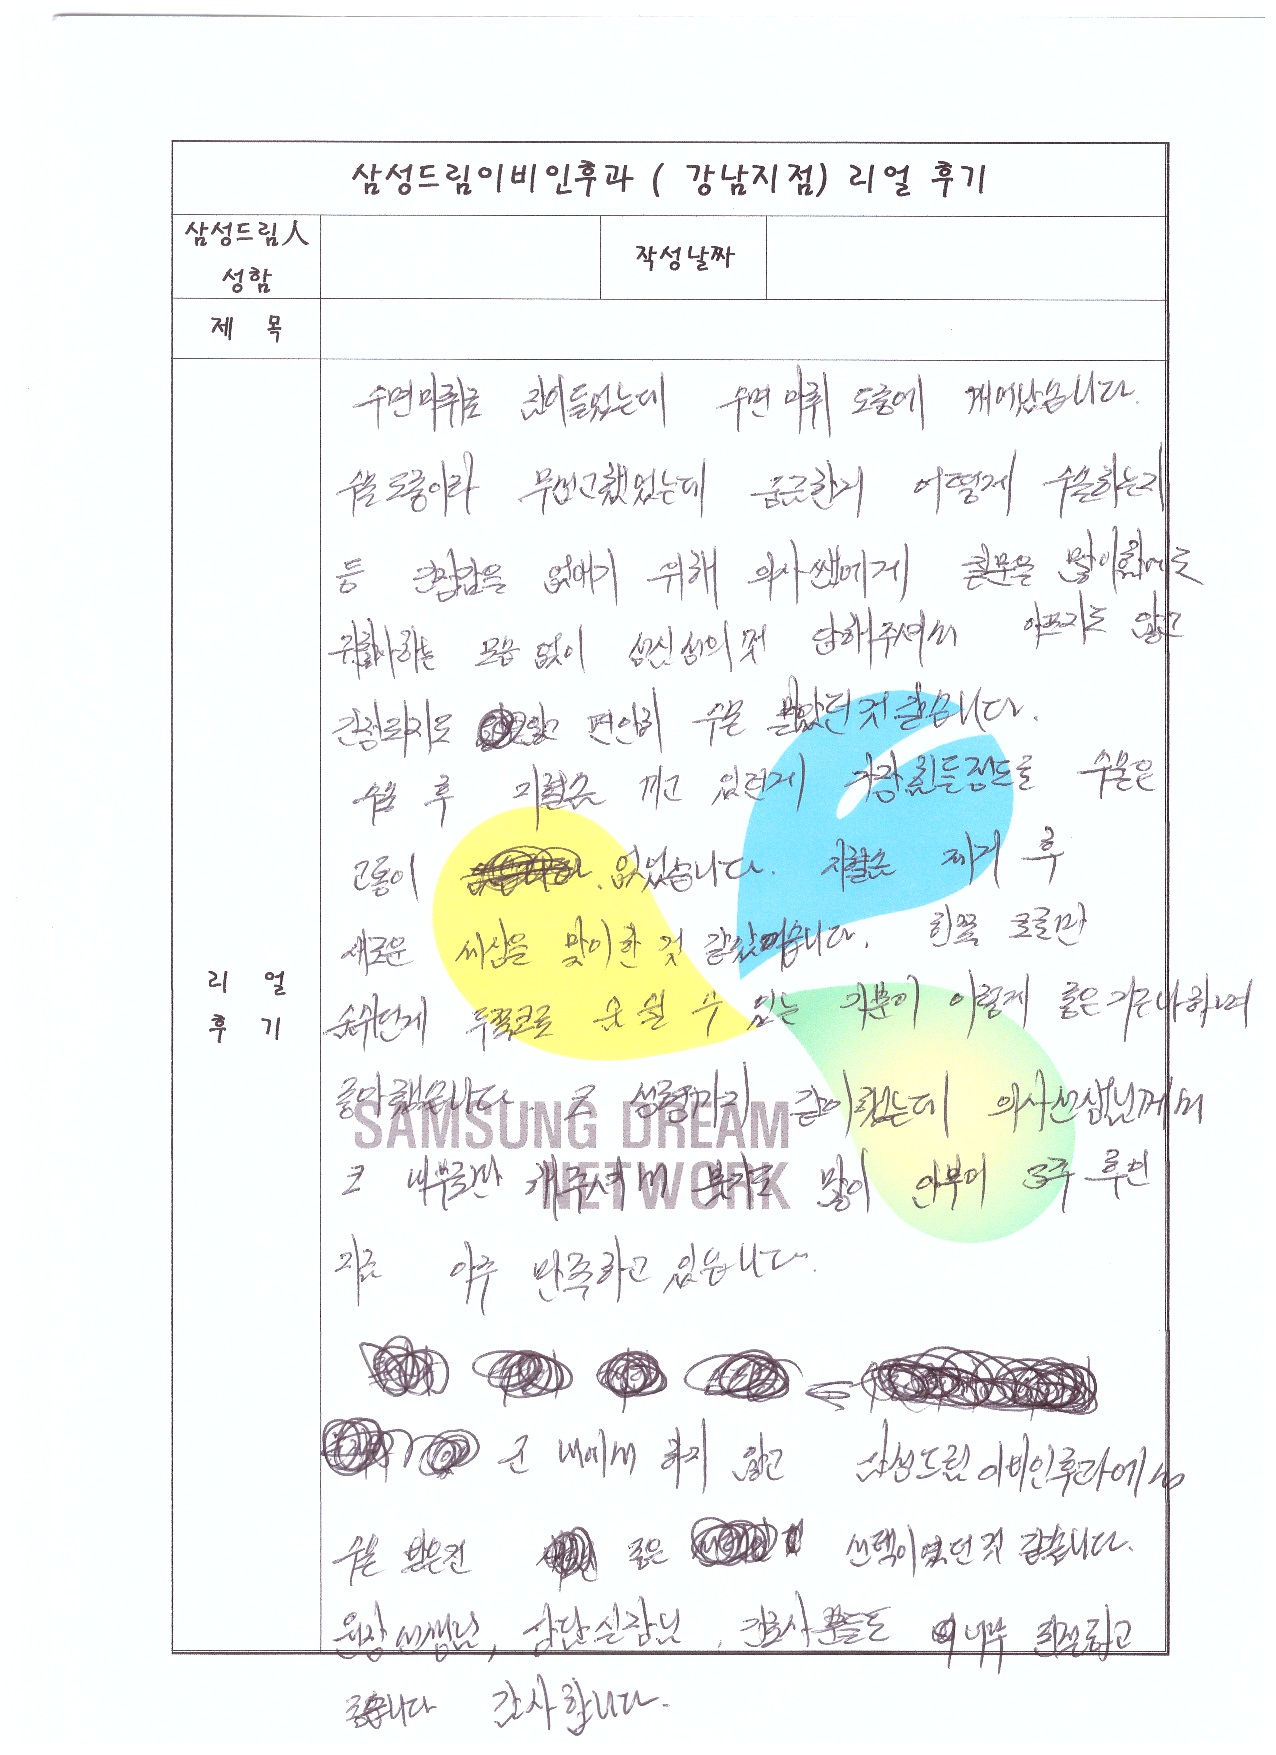 삼성드림이비인후과 ( 강남지점) 리얼 후기
삼성드림人
성함
작성날짜
제 목
수면마취로 잠이들었는데 수면 마취 도중에 깨어났습니다.
수술 도중이라 무섭고했었는데 궁금한거 어떻게 수술하는지
등 긴장감을 없애기 위해 의사쌤에게 질문을 많이했어도
귀찮아하는 모습 없이 성심성의껏 답해주셔서 아프지도 않고
긴장되지도 않고 편안히 수술 받았던것 같습니다.
수술 후 지혈솜 끼고 있는게 가장 힘든정도로 수술은
고통이 없었습니다. 지혈솜 제거 후
새로운 세상을 맞이한 것 같았습니다. 한쪽 코로만
숨쉬던게 두쪽코로 숨 쉴 수 있는 기분이 이렇게 좋은거구나하며
좋아했습니다. 코 성형까지 같이했는데 의사선생님께서
코 내부로만 해주셔서 붓기도 많이 안부어 3주 후인
지금 아주 만족하고 있습니다.
군 내에서 하지 않고 삼성드림이비인후과에서
수술 받은건 좋은 선택이었던것 같습니다.
원장선생님, 상담실장님, 간호사분들도 너무 친절하고
좋습니다 감사합니다.
리 얼
후 기
SAMSUNG DREAM
NETWORK